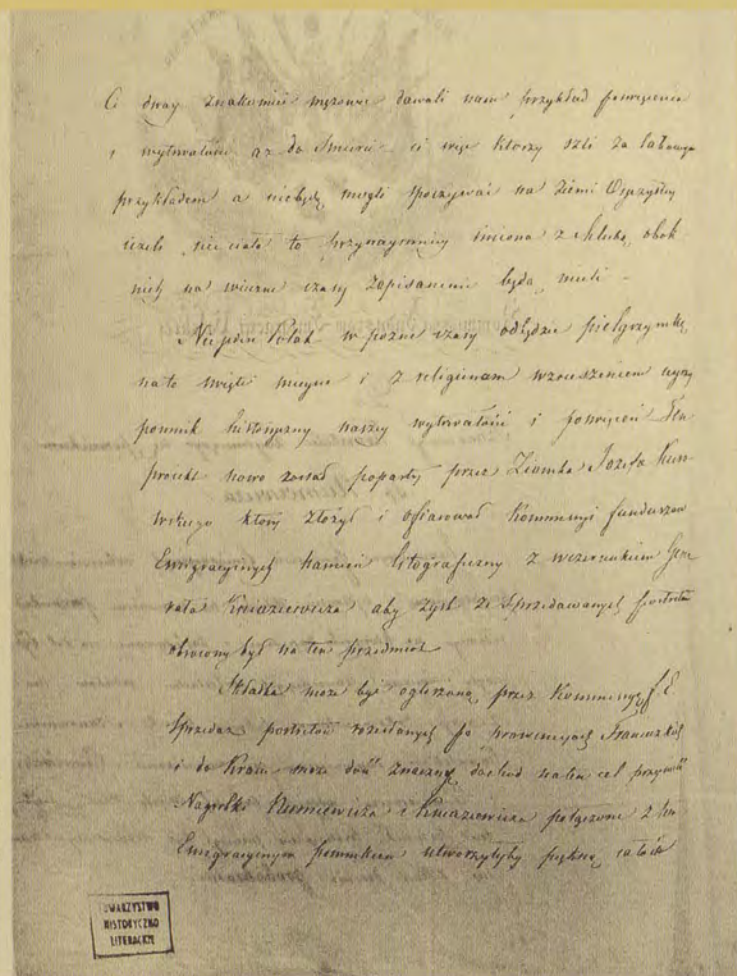 Ci dway znakomici mężowie dawali nam przykład poswięcenia
i wytrwałości aż do Smierci – ci więc którzy szli za
przykładem a niebędą mogli spoczywać na Ziemi Oyczystey
jeżeli nie ciała to przynaymniey imiona z chlubą obok
nich na wieczne czasy zapisanemi będą mieli –
Nie jeden Polak w pozne czasy odbędzie pielgrzymkę
na to święte mieysce i z religijnem wzruszeniem uyrzy
pomnik historyczny naszey wytrwałości i poswięceń Ten
proiekt nowo został poparty przez Ziomka Jozefa
który złożył i ofiarował Kommissyi funduszow
Emigracyinych kamień litograficzny z wizerunkiem Gene
rała Kniaziewicza aby zysk ze Sprzedawanych portretow
obrocony był na ten przedmiot
Składka może być ogłoszoną przez Kommissyę f. E
Sprzedaż portretow rozesłanych po prowincyach Francuzkich
i do Kraiu może dość znaczny dochod na ten cel przynieść
Nagrobki Niemcewicza i Kniaziewicza połączone z
Emigracyinym pomnikiem utworzyłyby piękną całość
TOWARZYSTWO
HISTORYCZNO
LITERACKIE